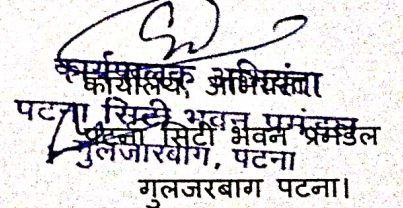 कार्यपालक अभियंता
कार्यालय, अभियंता
पटना सिटी भवन प्रमंडल
पटना सिटी भवन प्रमंडल
गुलजारबाग, पटना
गुलजरबाग पटना।